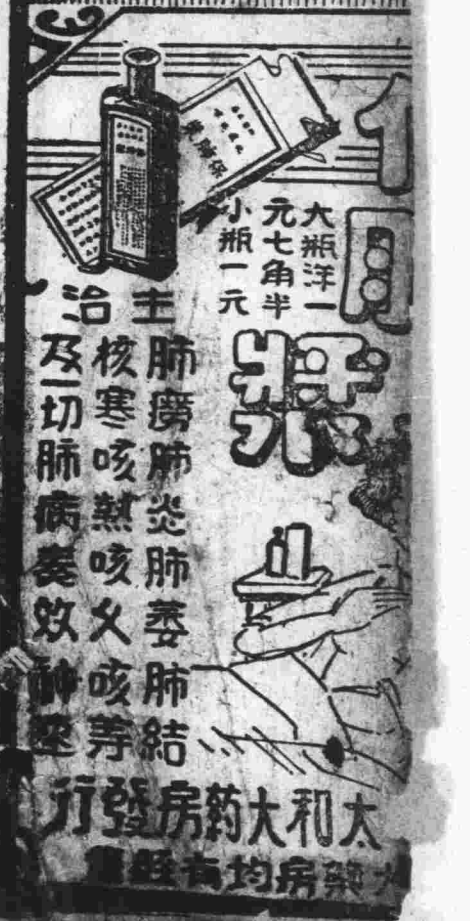 保肺漿
大瓶洋一
元七角半
小瓶一元
主治
肺癆肺炎肺萎肺結
核寒咳熱咳久咳等
及一切肺病奏效神
太和大药房發行
大藥房均有